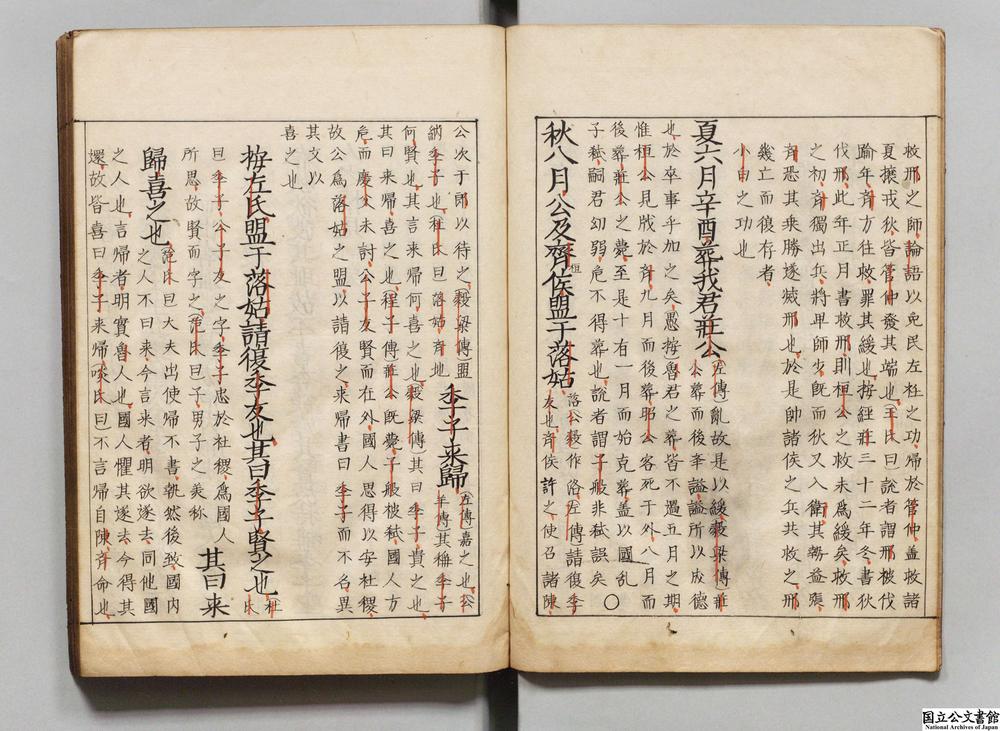 救邢之師論語以免民左衽之功歸於管仲盖救諸
夏攘戎狄皆管仲發其端也王氏曰説者謂邢被伐
踰年齊方往救罪其緩也按經莊三十二年冬書狄
伐邢此年正月書救邢則桓公之救未為緩矣救邢
之初齊獨出兵將卑師少既而狄又入衛其勢益張
齊恐其乗勝遂烖邢也於是帥諸侯之兵共救之邢
幾亡而復存者
小白之功也
夏六月辛酉塟我君莊公(左傳)亂故是以緩穀梁傳莊
公葬而後举謚謚所以成德
也於卒事乎加之矣愚按魯君之葬皆不過五月之期
惟桓公見戕於齊九月而後葬昭公客死于外八月而
後葬莊公之薨至是十有一月而始克葬盖以國亂
子弑嗣君幼弱危不得葬也説者謂子般非弑誤矣○
秋八月公及齊侯盟于落姑落公穀作洛(左傳)請復季
桓
友也齊侯許之使召諸陳
公次于郎以待之(穀梁傳)盟
納季子也杜氏曰落姑齊地季子来歸(左傳)嘉之也(公
羊傳其稱季子
何賢也其言来歸何喜之也(穀梁傳)其曰季子貴之也
其曰来歸喜之也程子傳莊公既薨子般被弑國人方
危而慶父未討公子友賢而在外國人思得以安杜稷
故公為落姑之盟以請復之来歸書曰季子而不名異
其文以
喜之也
按左氏盟于落姑請復季友也其曰季子賢之也杜
氏
曰季子公子友之字季子忠於杜稷為國人
所思故賢而字之(范氏曰子男子之美称其曰来
歸喜之也(范氏曰大夫出使歸不書執然後致國内
之人不曰来今言来者明欲遂去同他國
之人也言歸者明實魯人也國人懼其遂去今得其
還故皆喜曰季子来歸啖氏曰不言歸自陳齊命也
国立公文書館
National Archives of Japan